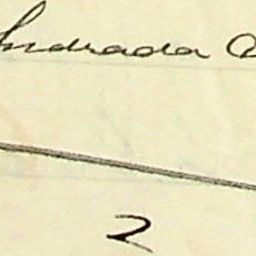 Andrada
2